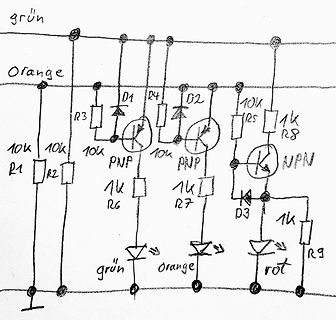 grün
Orange
R3
D1
R4
D2
10k
R5
1k
R8
10k
R1
10k
R2
10k
PNP
10k
PNP
NPN
1k
R6
1k
R7
D3
1k
R9
grün
Orange
rot